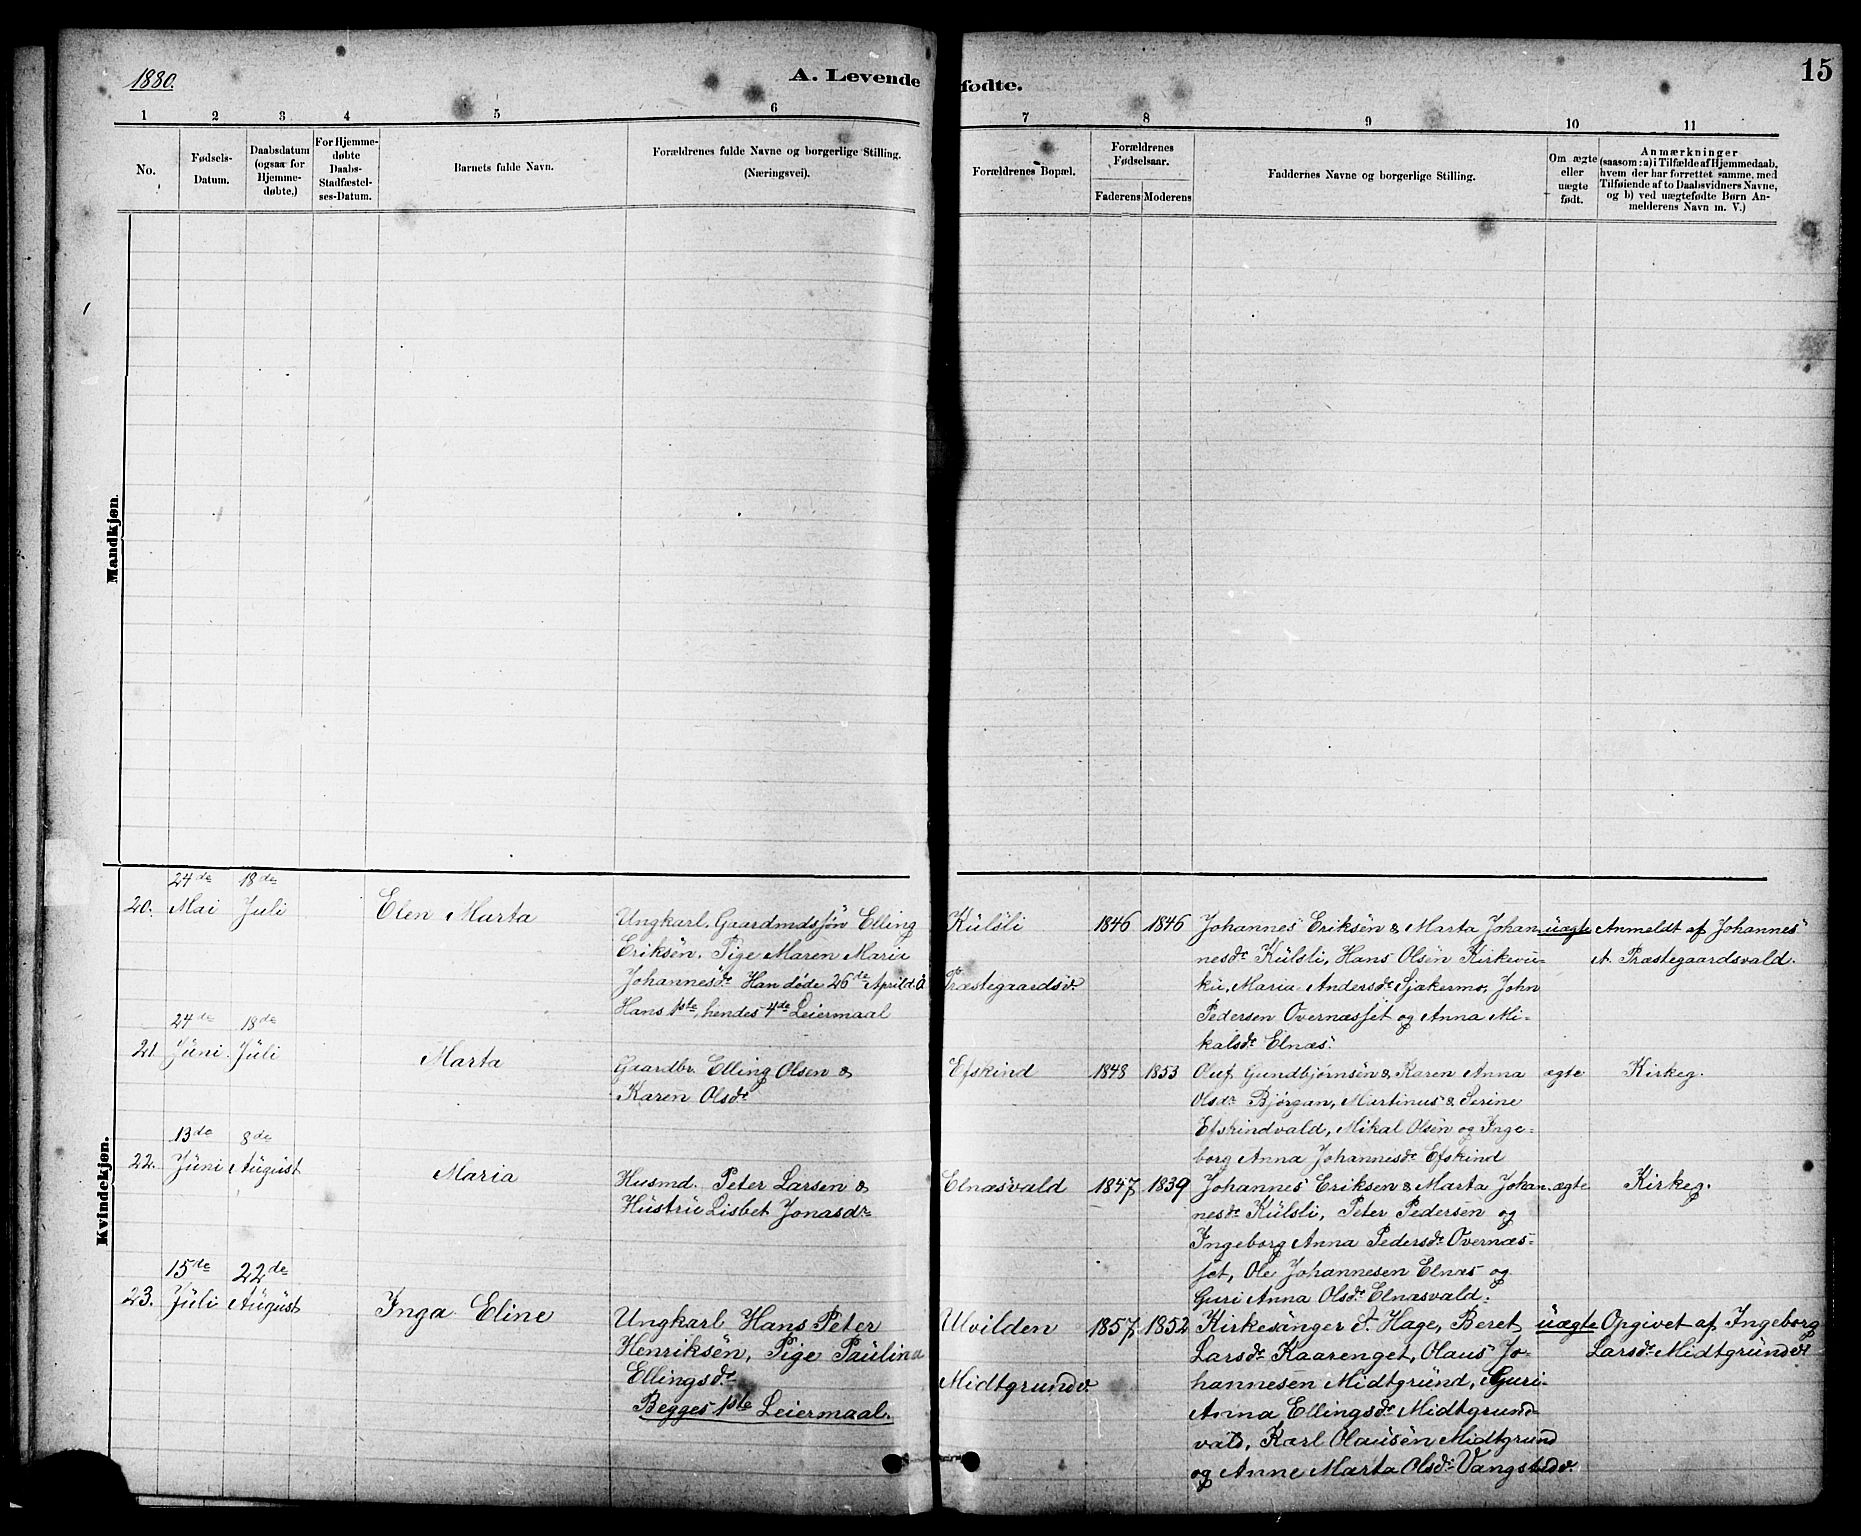 1880.
A. Levende
fødte.
15
1
2
3
4
5
6
7
8
9
10
11
No.
Fødsels-
Datum.
Daabsdatum
(ogsaa for
Hjemme-
døbte.)
For Hjemme-
døbte
Daabs-
Stadfæstel-
ses-Datum.
Barnets fulde Navn.
Forældrenes fulde Navne og borgerlige Stilling.
(Næringsvei).
Forældrenes Bopæl.
Forældrenes
Fødselsaar.
Faderens
Moderens
Faddernes Navne og borgerlige Stilling.
Om ægte
eller
uægte
født.
Anmærkninger
(saasom: a) i Tilfælde af Hjemmedaab,
hvem der har forrettet samme, med
Tilføiende af to Daabsvidners Navne,
og b) ved uægtefødte Børn An-
melderens Navn m. V.)
Mandkjøn.
Kvindekjøn.
20.
24de
Mai
18de
Juli
Elen Marta
Ungkarl, Gaardmdssøn Elling
Eriksen, Pige Maren Maria
Johannesdr. Han døde 26de April d. Å
Hans 1ste, hendes 4de Leiermaal
Külsli
Præstegaardsv.
1846
1846
Johannes Eriksen & Marta Johan-
nesdr Külsli, Hans Olsen Kirkevu-
ku, Maria Andersdr Sjækermo, John
Pedersen Overnæsset og Anna Mi-
kalsdr Elnæs.
uægte
Anmeldt af Johannes
A. Præstegaardsvald.
21.
24de
Juni
18de
Juli
Marta
Gaardbr. Elling Olsen &
Karen Olsdr
Efskind
1848
1853
Oluf Gundbjørnsen & Karen Anna
Olsdr Bjørgan, Martinus & Serine
Efskindvald, Mikal Olsen og Inge-
borg Anna Johannesdr Efskind
ægte
Kirkeg.
22.
13de
Juni
8de
August
Maria
Husmd. Peter Larsen &
Hustru Lisbet Jonasdr
Elnæsvald
1847
1839
Johannes Eriksen & Marta Johan-
nesdr Külsli, Peter Pedersen og
Ingeborg Anna Pedersdr Overnæs-
set, Ole Johannesen Elnæs og
Guri Anna Olsdr Elnæsvald.
ægte
Kirkeg.
23.
15de
Juli
22de
August
Inga Eline
Ungkarl Hans Peter
Henriksen, Pige Paulina
Ellingsdr
Begges 1ste Leiermaal.
Ulvilden
Midtgrundv.
1857
1852
Kirkesanger J. Hage, Beret
Larsdr Kaarenget, Olaus Jo-
hannesen Midtgrund, Guri-
Anna Ellingsdr Midtgrund-
vald, Karl Olausen Midtgrund
og Anne Marta Olsdr Vangstadv.
uægte
Opgivet af Ingeborg
Larsdr Midtgrundv.